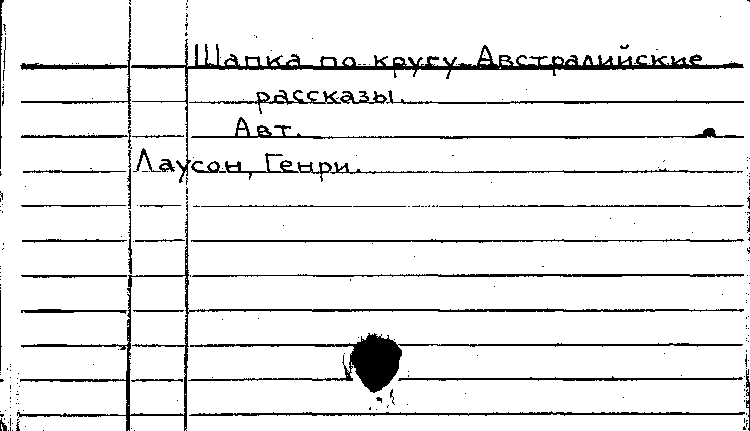 Шапка по кругу. Австралийские
рассказы.
Авт.
Лаусон, Генри.